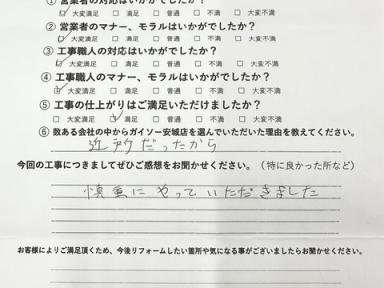 ① 営業者の対応はいかがでしたか?
☑ 大変満足 ☐ 満足 ☐ 普通 ☐ 不満 ☐ 大変不満
② 営業者のマナー、モラルはいかがでしたか?
☑ 大変満足 ☐ 満足 ☐ 普通 ☐ 不満 ☐ 大変不満
③ 工事職人の対応はいかがでしたか?
☑ 大変満足 ☐ 満足 ☐ 普通 ☐ 不満 ☐ 大変不満
④ 工事職人のマナー、モラルはいかがでしたか?
☑ 大変満足 ☐ 満足 ☐ 普通 ☐ 不満 ☐ 大変不満
⑤ 工事の仕上がりはご満足いただけましたか?
☐ 大変満足 ☑ 満足 ☐ 普通 ☐ 不満 ☐ 大変不満
⑥ 数ある会社の中からガイソー安城店を選んでいただいた理由を教えてください。
近所だったから
今回の工事につきましてぜひご感想をお聞かせください。(特に良かった所など)
慎重にやっていただきました
お客様によりご満足頂くため、今後リフォームしたい箇所や気になる事がございましたらお聞かせください。